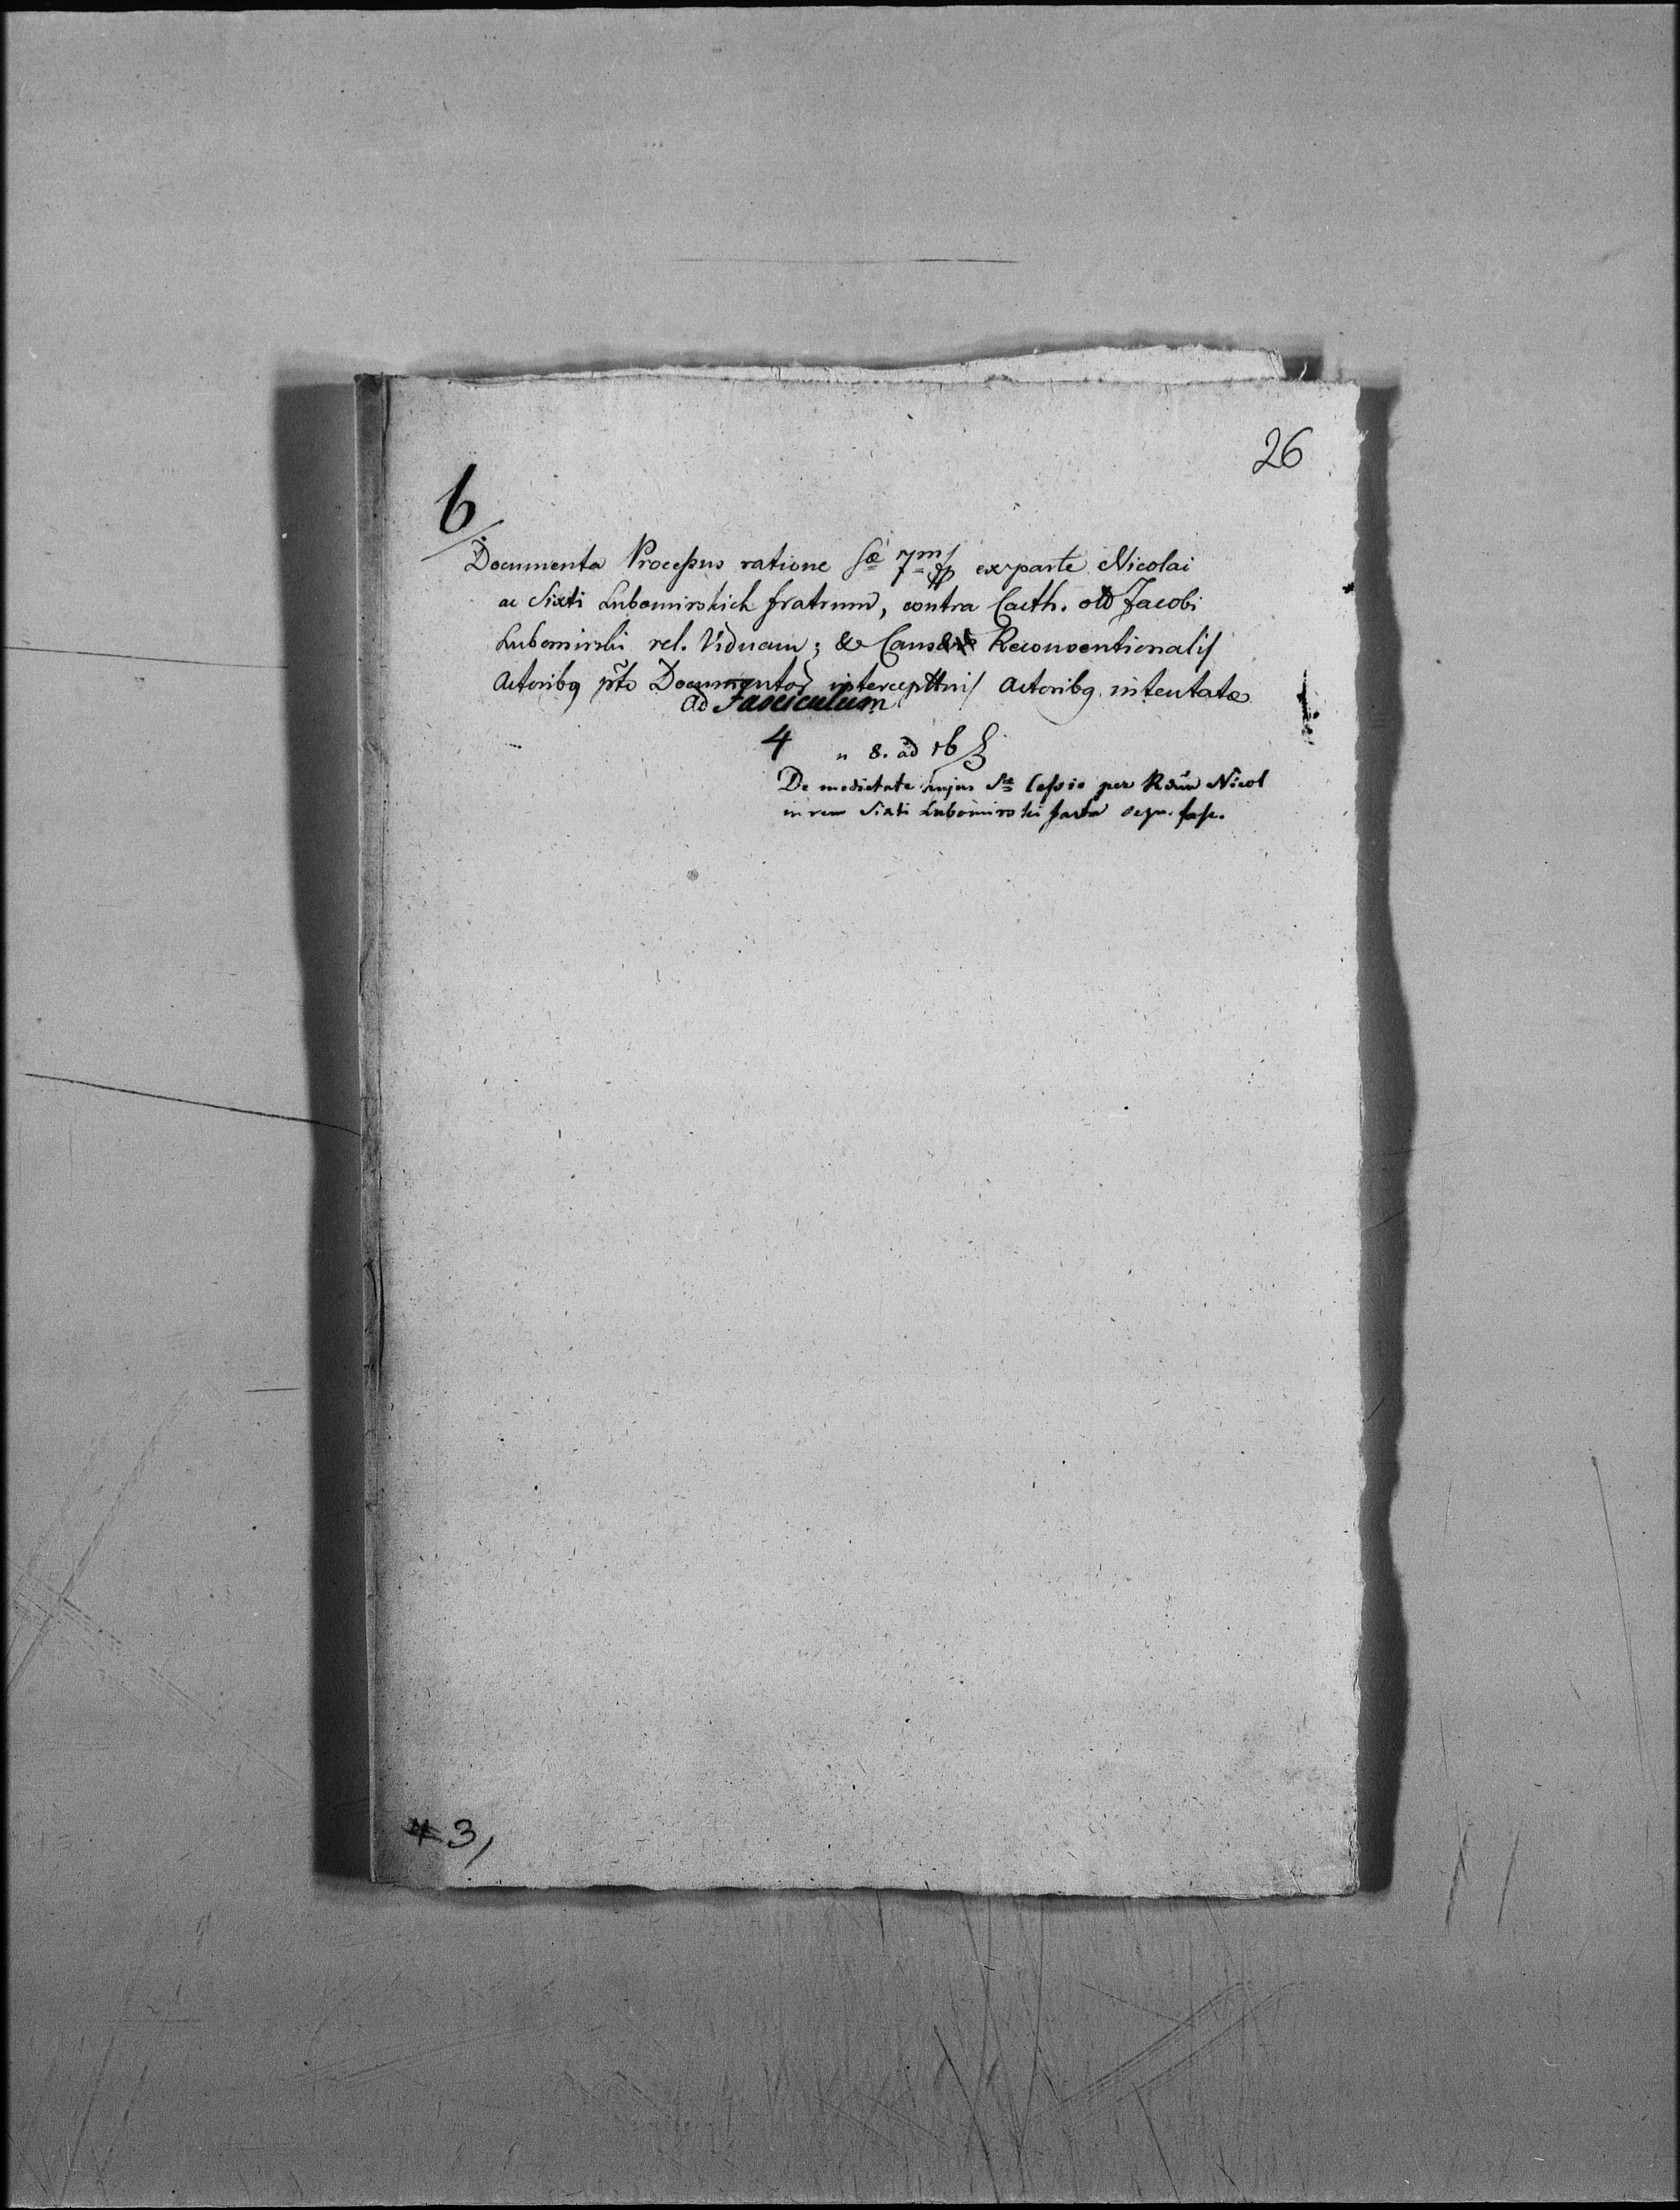 26
6/
Documenta Processus ratione Sae 7m/ ex parte Nicolai
ac Sixti Lubomirskich fratrum, contra Cath. olo Jacobi
Lubomirski rel. Viduam; & Causae Reconventionalis
Actoribq pto Documentor intercepttnis Actoribq intentatae
ad Fasciculum
4 " 8. ad 16
De medietate hujus Sae Cessio per Rdum Nicol
in rem Sixti Lubomirski facta seqv. fasc.
3/